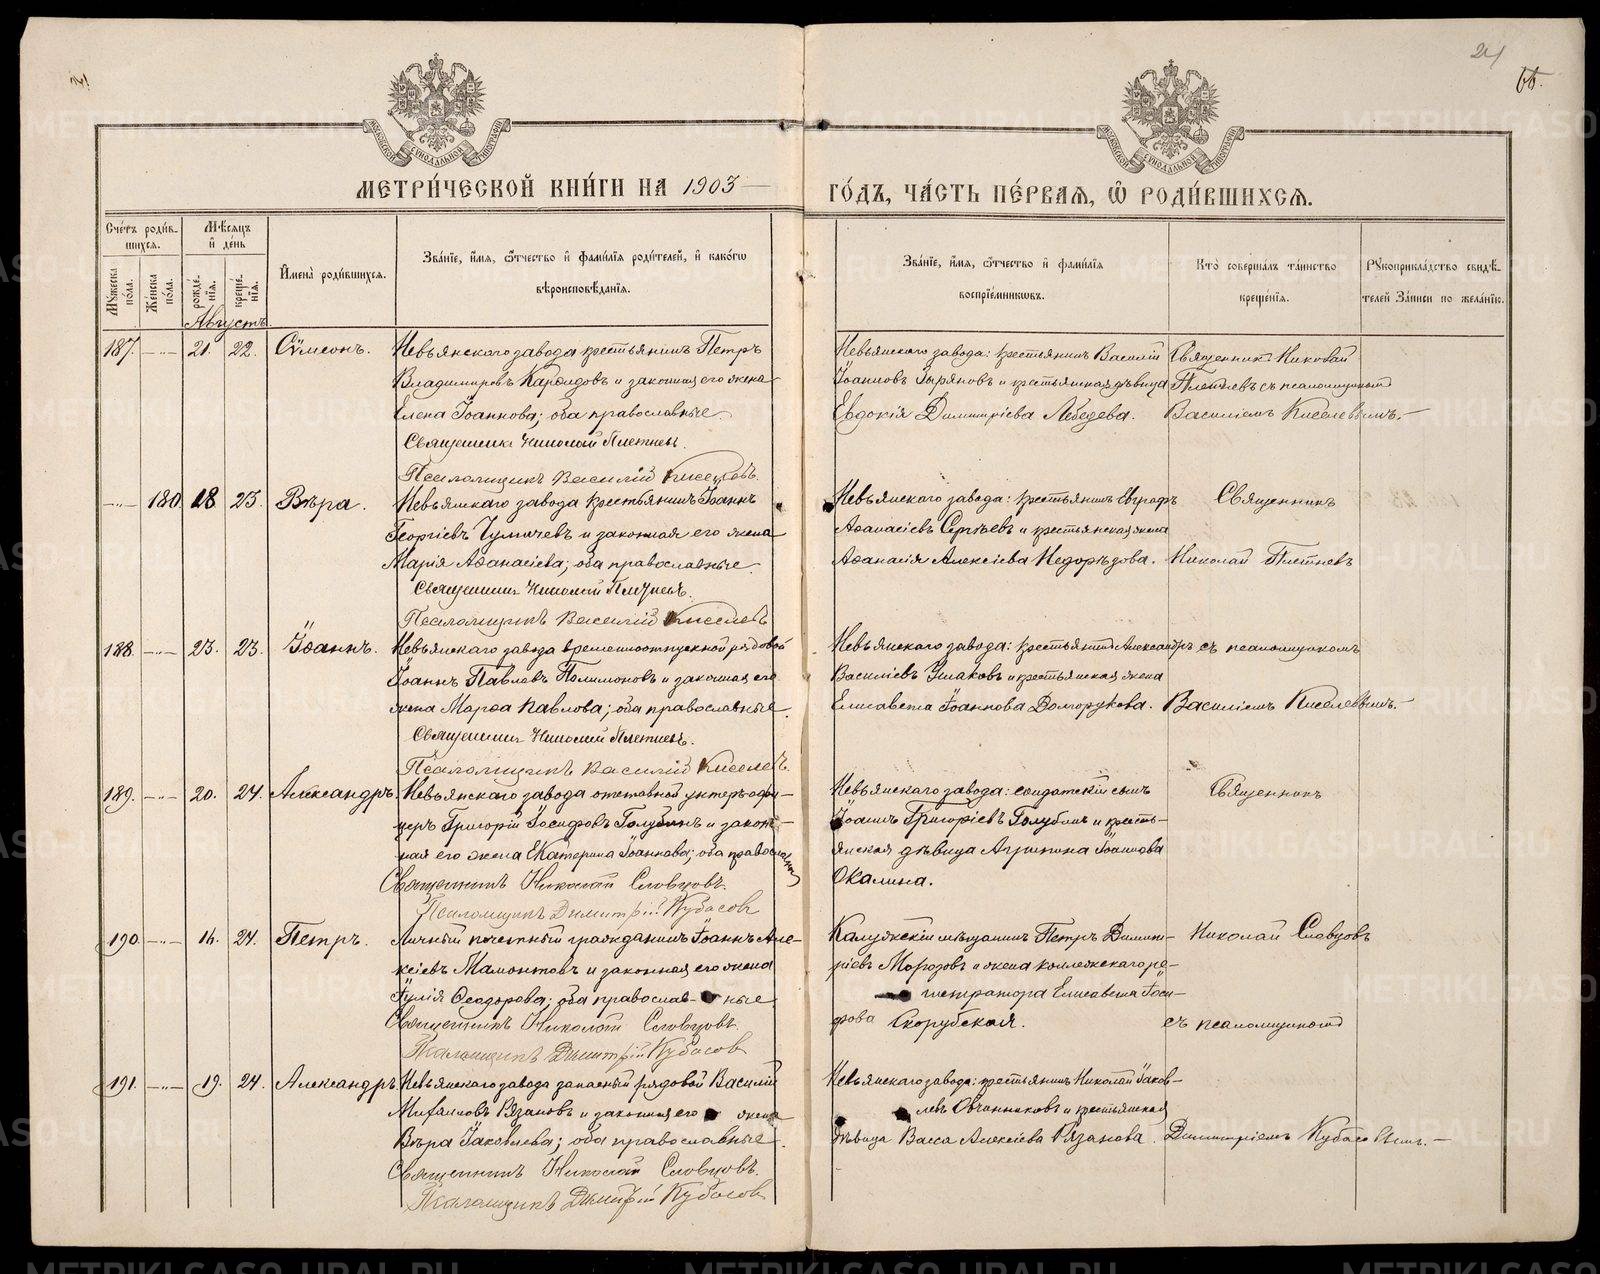 21
МЕТРИ́ЧЕСКОЙ КНИ́ГИ НА 1903 —
ГО́ДЪ, ЧА́СТЬ ПЕ́РВАЯ, Ѽ РОДИ́ВШИХСЯ.
Сче́тъ роди́в-
шихся.
Мꙋ́жеска по́ла.
Же́нска по́ла.
Мѣ́сяцъ и де́нь
рожде́-нїя.
креще́-нїя.
Имена̀ роди́вшихся.
Зва́нїе, и́мя, ѻ́тчество и фами́лїя роди́телей, и како́гѡ
вѣроисповѣ́данїя.
Зва́нїе, и́мя, ѻ́тчество и фами́лїя
воспрїе́мникѡвъ.
Кто̀ соверша́лъ та́инство
креще́нїя.
Рꙋкоприкла́дство свидѣ́-
телей за́писи по жела́нїю.
Августъ.
187. —„— 21. 22. Сѵмеонъ. Невьянскаго завода крестьянинъ Петръ
Владимировъ Карфидовъ и законная его жена
Елена Іоаннова; оба православные.
Священникъ Николай Плетневъ.
Псаломщикъ Василій Киселевъ.
Невьянскаго завода: крестьянинъ Василій
Іоанновъ Зыряновъ и крестьянская дѣвица
Евдокія Димитріева Лебедева.
Священникъ Николай
Плетневъ съ псаломщикомъ
Василіемъ Киселевымъ.—
—„— 180. 18. 23. Вѣра. Невьянскаго завода крестьянинъ Іоаннъ
Георгіевъ Чумичевъ и законная его жена
Марія Аѳанасіева; оба православные.
Священникъ Николай Плетневъ.
Псаломщикъ Василій Киселевъ
Невьянскаго завода: крестьянинъ Евграфъ
Аѳанасіевъ Сергѣевъ и крестьянская жена
Аѳанасія Алексіева Недорѣзова.
Священникъ
Николай Плетневъ
188. —„— 23. 23. Іоаннъ. Невьянскаго завода временноотпускной рядовой
Іоаннъ Павловъ Полимоновъ и законная его
жена Марѳа Павлова; оба православные.
Священникъ Николай Плетневъ.
Псаломщикъ Василій Киселевъ.
Невьянскаго завода: крестьянинъ Александръ
Василіевъ Ушаковъ и крестьянская жена
Елисавета Іоаннова Долгорукова.
съ псаломщикомъ
Василіемъ Киселевымъ.—
189. —„— 20. 24. Александръ. Невьянскаго завода отставной унтеръ-офи-
церъ Григорій Іосифовъ Голубинъ и закон-
ная его жена Екатерина Іоаннова; оба православные
Священникъ Николай Словцовъ.
Псаломщикъ Димитрій Кубасовъ
Невьянскаго завода: солдатскій сынъ
Іоаннъ Григоріевъ Голубинъ и кресть-
янская дѣвица Агрипина Іоаннова
Окалина.
Священникъ
190. —„— 16. 24. Петръ. Личный почетный гражданинъ Іоаннъ Але-
ксіевъ Мамонтовъ и законная его жена
Іулія Ѳеодорова; оба православ-ные
Священникъ Николай Словцовъ.
Псаломщикъ Димитрій Кубасовъ
Калужскій мѣщанинъ Петръ Димит-
ріевъ Морозовъ и жена коллежскаго ре-
гистратора Елисавета Іоси-
фова Скорубская.
Николай Словцовъ
съ псаломщикомъ
191. —„— 19. 24. Александръ. Невьянскаго завода запасный рядовой Василій
Михаиловъ Рязановъ и законная его жена
Вѣра Іаковлева; оба православные.
Священникъ Николай Словцовъ.
Псаломщикъ Димитрій Кубасовъ
Невьянскаго завода: крестьянинъ Николай Іаков-
левъ Овчинниковъ и крестьянская
дѣвица Васса Алексіева Рязанова.
Димитріемъ Кубасовымъ.—
METRIKI.CASO-URAL.RU